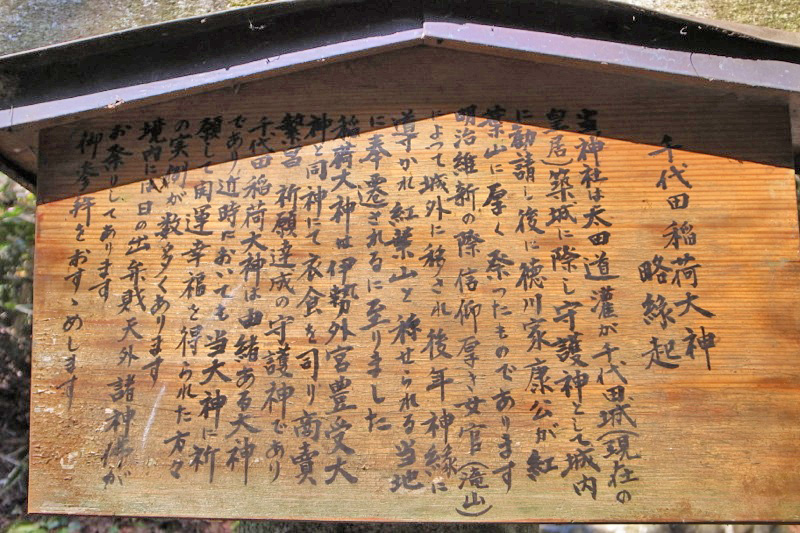 千代田稲荷大神
略縁起
当神社は太田道灌が千代田城(現在の
皇居)築城に際し守護神として城内
に勧請し後に徳川家康公が紅
葉山に厚く祭ったものであります
明治維新の際信仰厚き女官(滝山)
によって城外に移され後年神縁に
導かれ紅葉山と称せられる当地
に奉遷されるに至りました
稲荷大神は伊勢外宮豊受大
神と同神にて衣食を司り商賣
繁営祈願達成の守護神であり
千代田稲荷大神は由緒ある大神
であり近時においても当大神に祈
願して開運幸福を得られた方々
の実例が数多くあります
境内には日の出弁財天外諸神佛が
お祭りしてあります
御参拝をおすゝめします